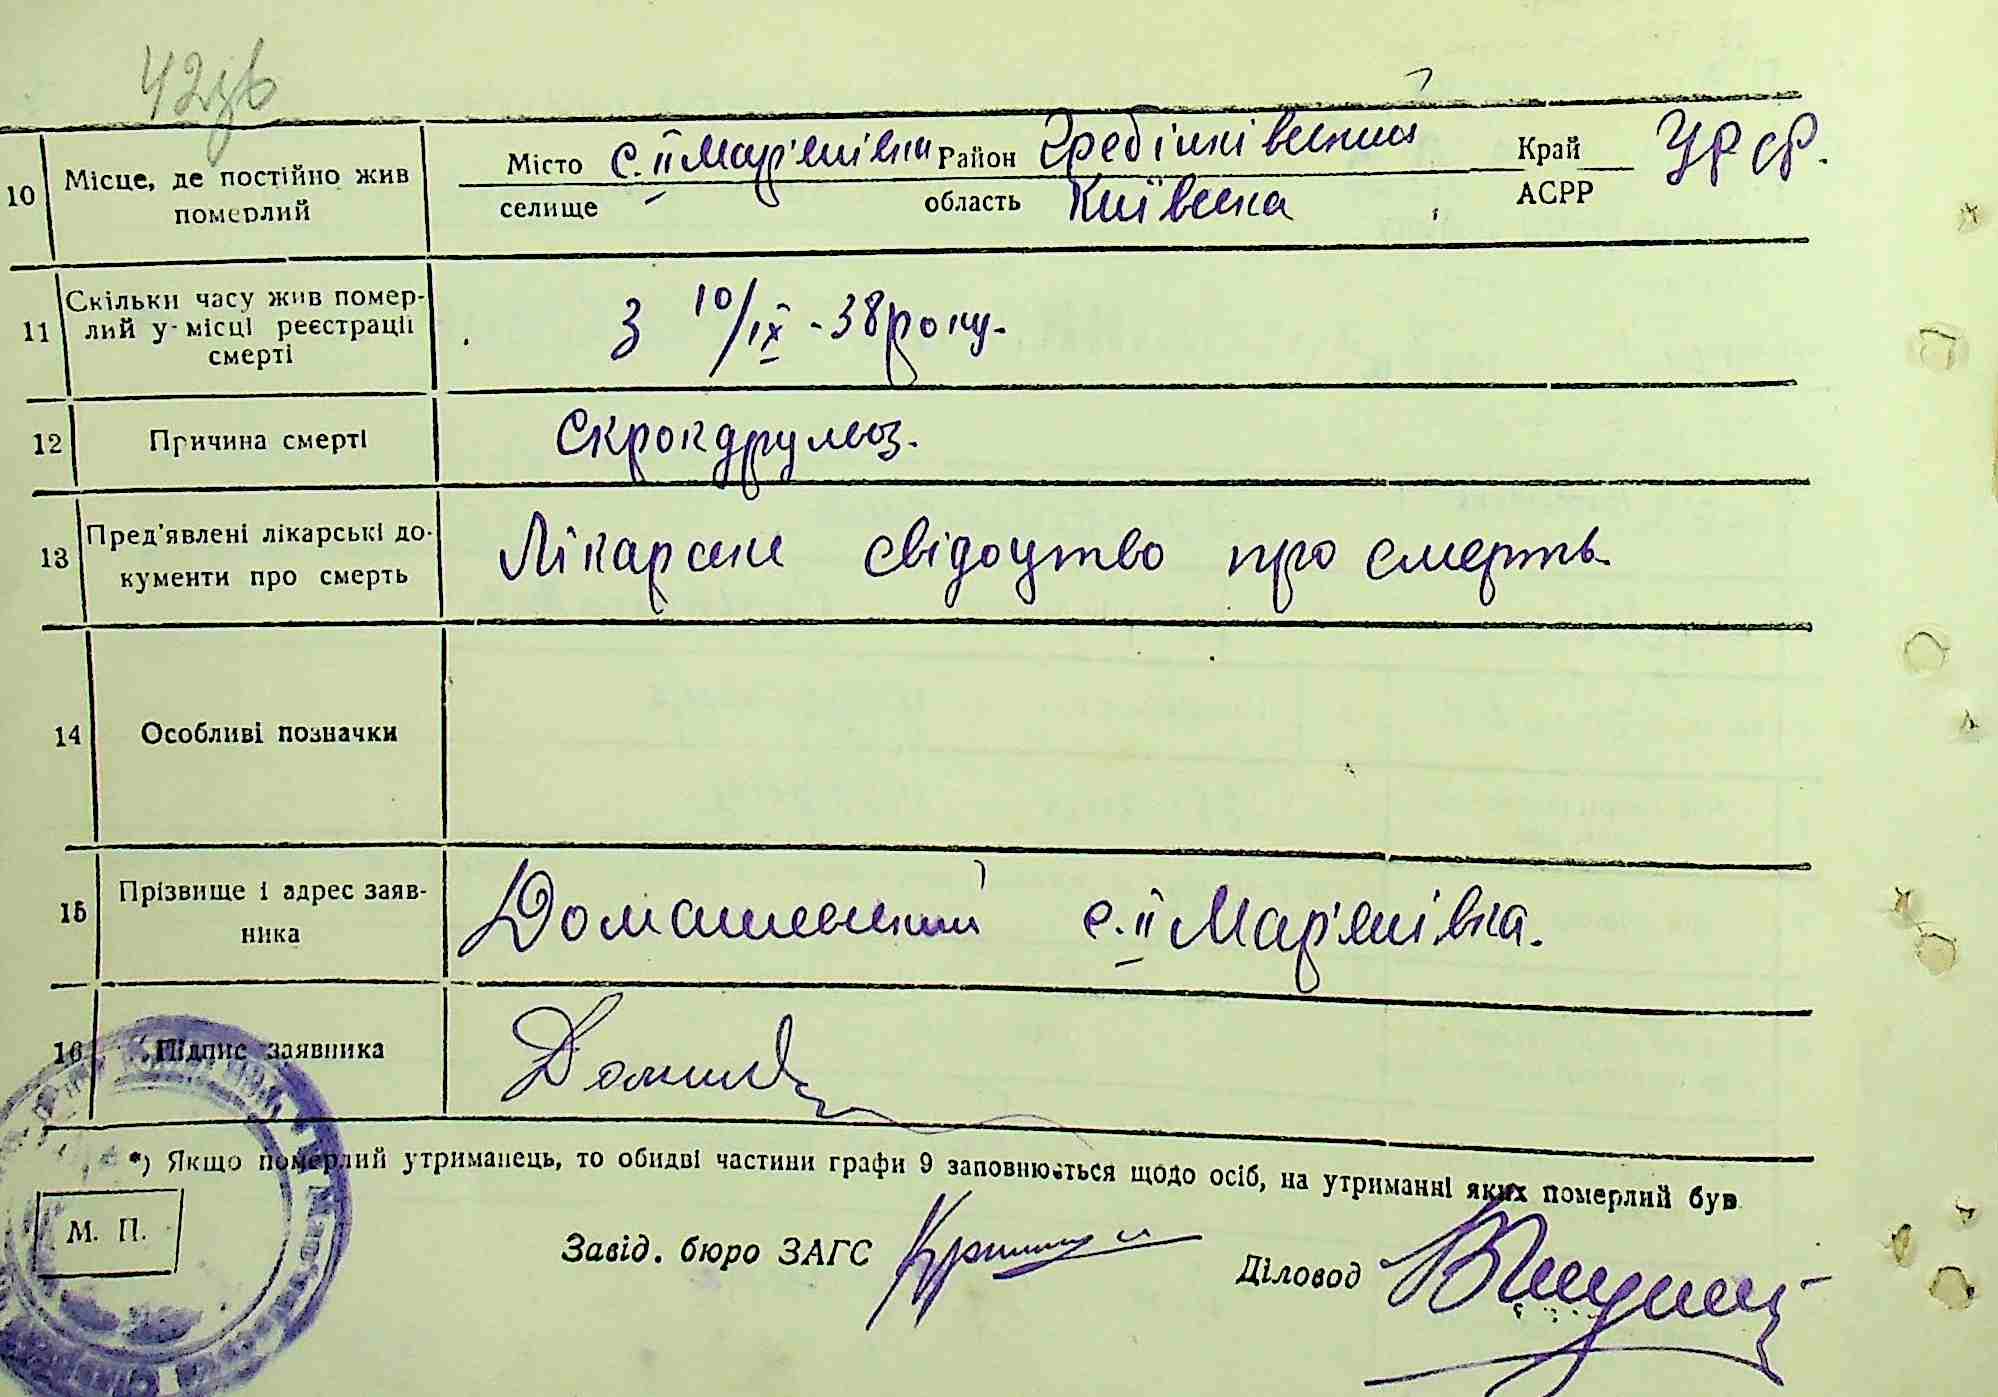 42
10
Місце, де постійно жив
померлий
Місто с. ІІ Мар'янівка Район Гребінківський Край УРСР.
селище область Київська АСРР
11
Скільки часу жив помер-
лий у місці реєстрації
смерті
З 10/ІХ - 38 року.
12
Причина смерті
Скрокдрульоз.
13
Пред'явлені лікарські до-
кументи про смерть
Лікарске свідоцтво про смерть
14
Особливі позначки
15
Прізвище і адрес заяв-
ника
Домашевський с. ІІ Мар'янівка.
16
Підпис заявника
*) Якщо померлий утриманець, то обидві частини графи 9 заповнюється щодо осіб, на утриманні яких померлий був
М. П.
Завід. бюро ЗАГС
Діловод